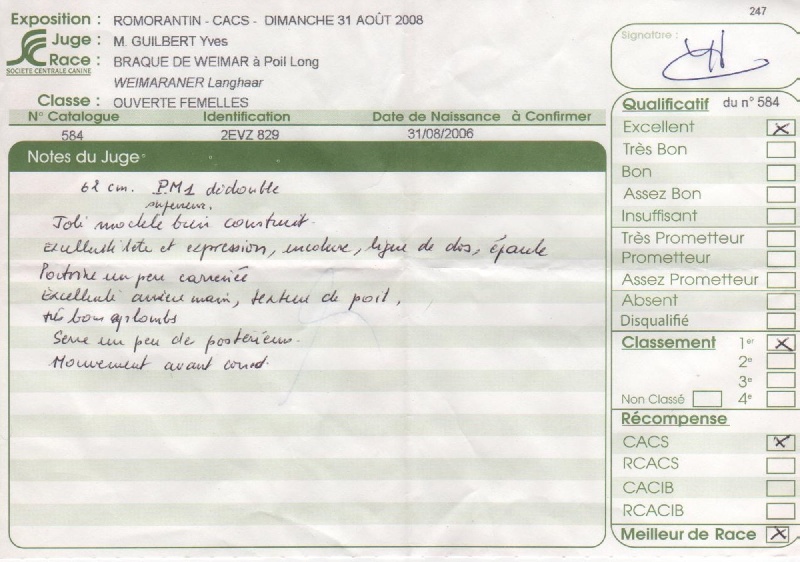 247
Exposition : ROMORANTIN - CACS - DIMANCHE 31 AOÛT 2008
Juge : M. GUILBERT Yves
Race : BRAQUE DE WEIMAR à Poil Long
SOCIÉTÉ CENTRALE CANINE
WEIMARANER Langhaar
Classe : OUVERTE FEMELLES
N° Catalogue Identification Date de Naissance à Confirmer
584 2EVZ 829 31/08/2006
Notes du Juge
62 cm. P.M1 dédoublé
supérieur.
Joli modèle bien construit.
Excellente tête et expression, encolure, ligne de dos, épaule
Poitrine un peu carénée
Excellente arrière main, texture de poil,
très bons aplombs
Serre un peu de postérieurs.
Mouvement avant
Signature :
Qualificatif du n° 584
Excellent X
Très Bon
Bon
Assez Bon
Insuffisant
Très Prometteur
Prometteur
Assez Prometteur
Absent
Disqualifié
Classement 1er X
2e
3e
Non Classé 4e
Récompense
CACS X
RCACS
CACIB
RCACIB
Meilleur de Race X